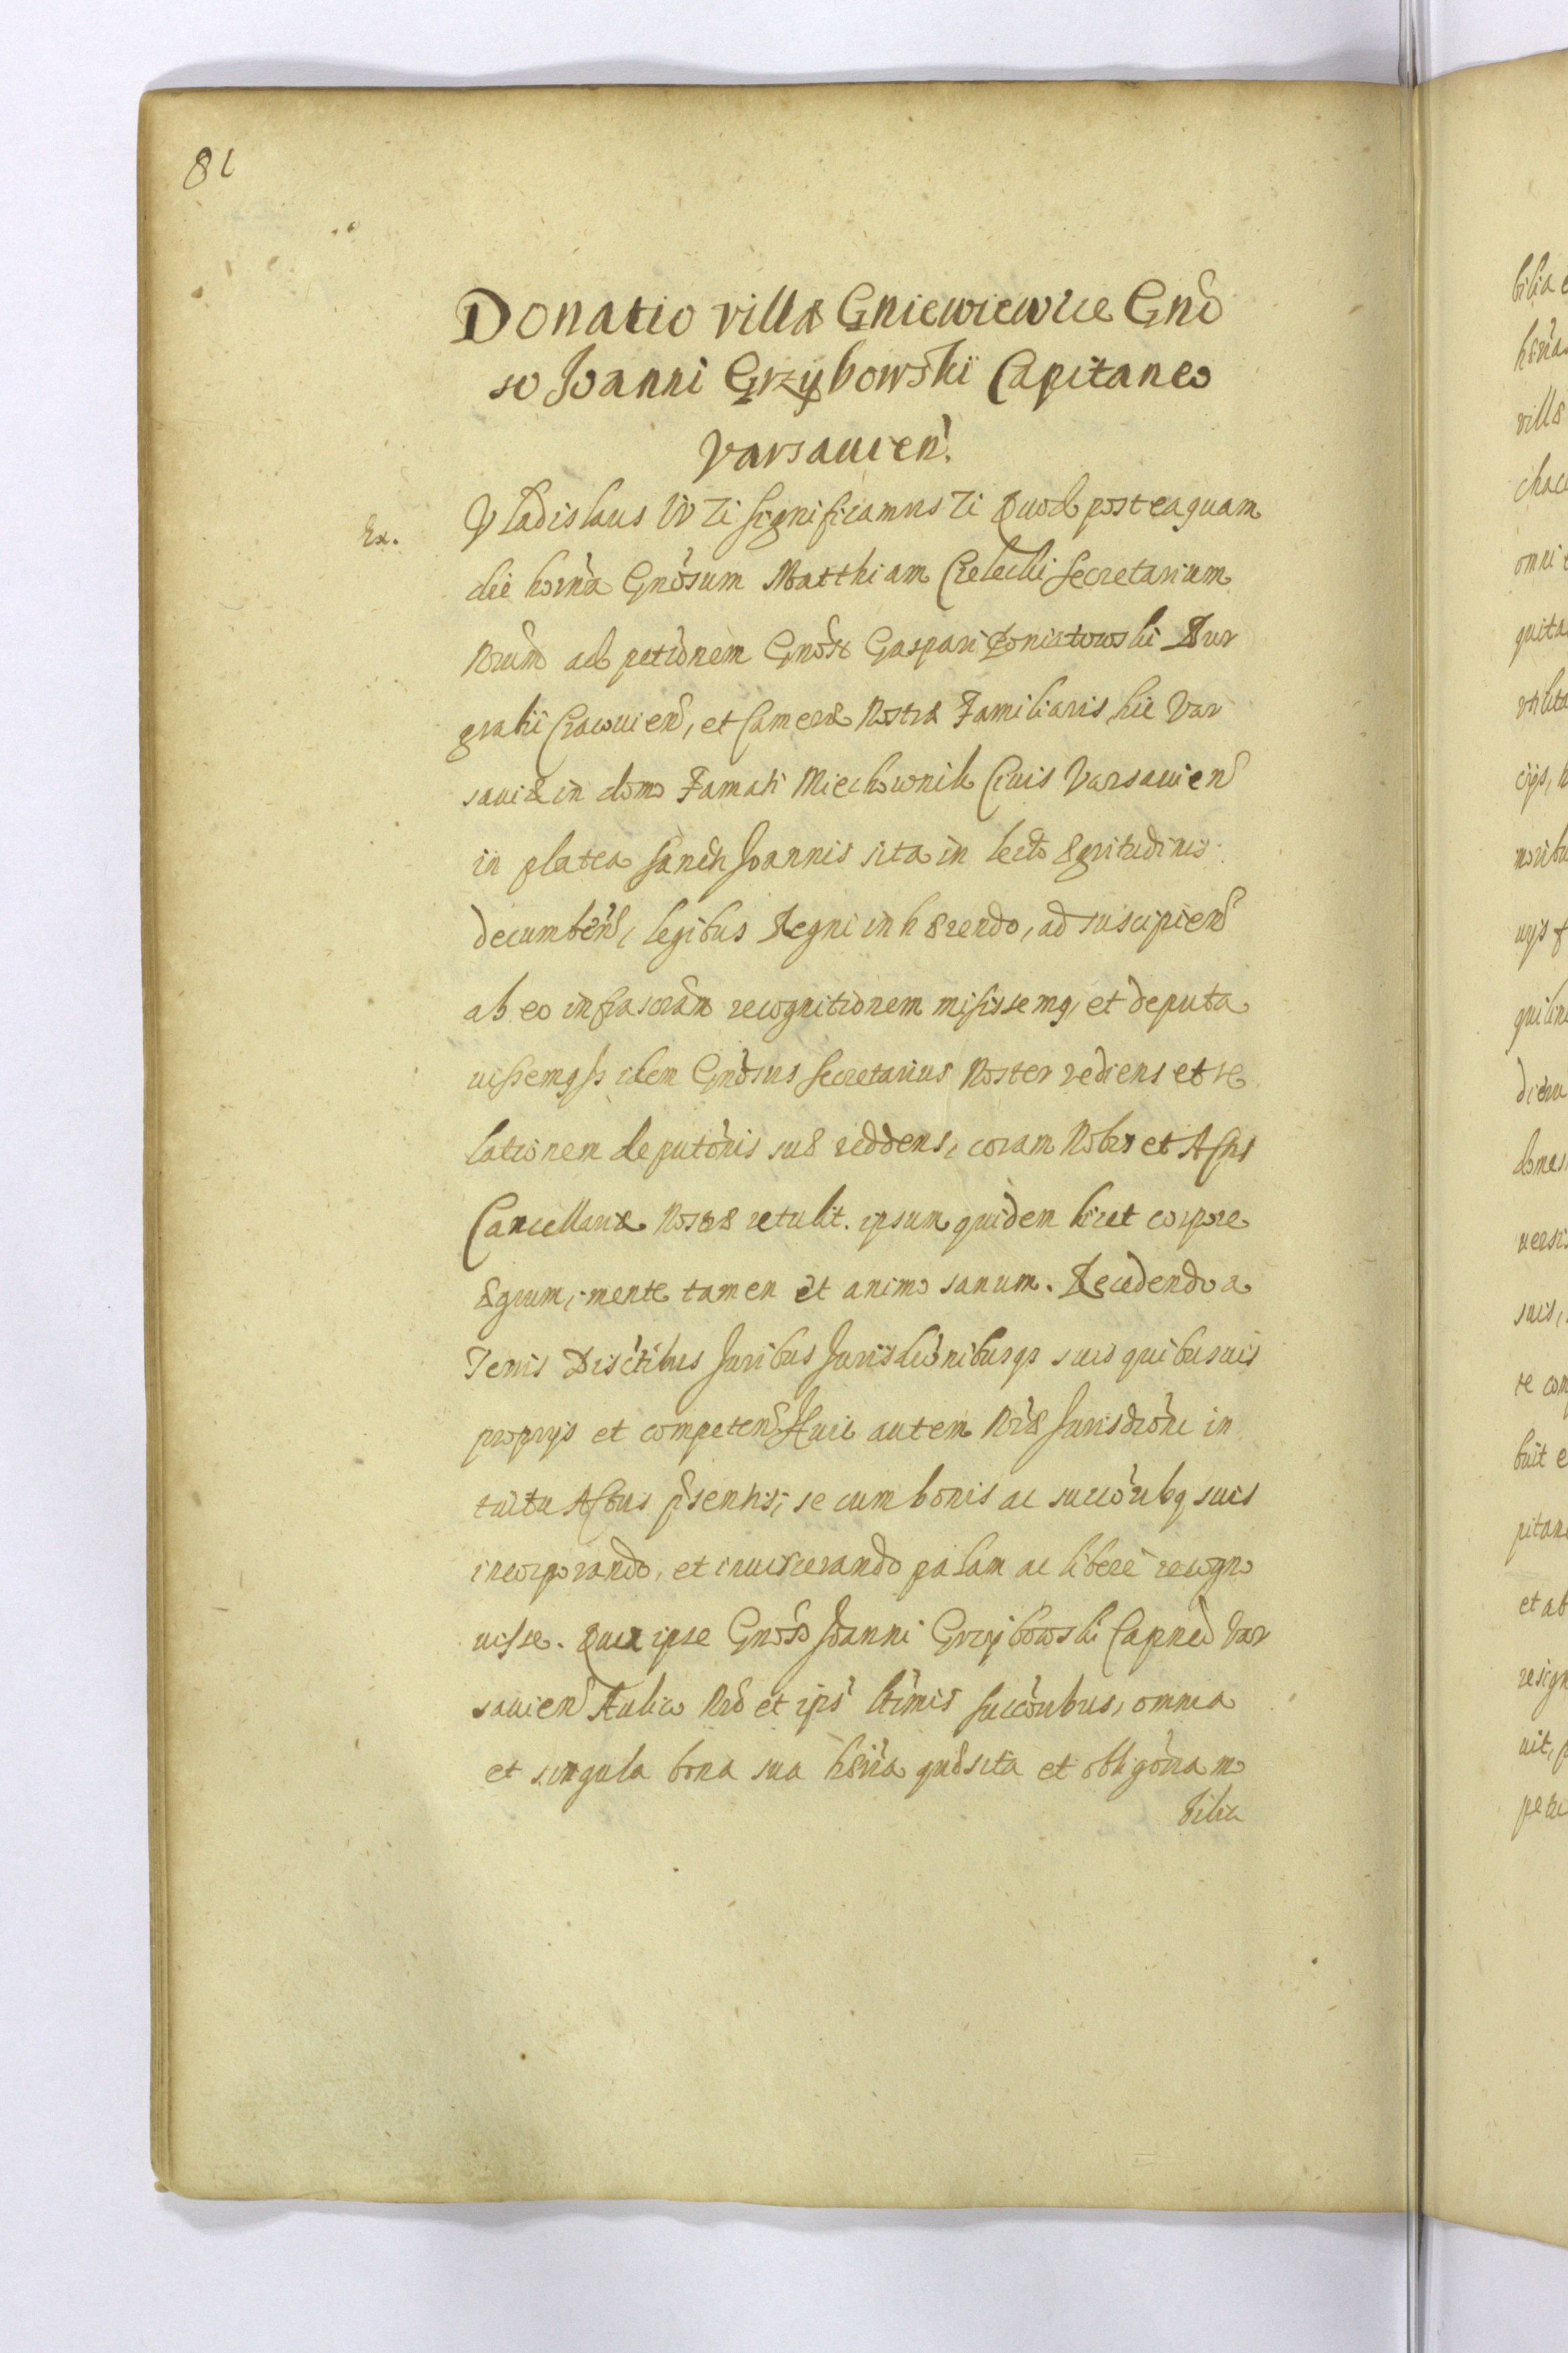 81
Donatio villæ Gniewiewice Gnõ
so Joanni Grzybowski Capitaneo
Varsavien.
Ex. Vladislaus IV Zi significamus Zi Quod posteaquam
die horna Gnosum Matthiam Secretarium
Nrum ad petionem Gnosi Gaspari Poniatowski Bur
grabii Cracovien, et Cameræ Nostræ Familiaris hic Var
saviæ in domo Famati Miechownik Civis Varsavien
in platea Sancti Joannis sita in lecto ægritudinis
decumben, legibus Regni inhærendo, ad suscipiend
ab eo infrascram recognitionem misissemq, et deputa
vissemq, idem Gnosus Secretarius Noster rediens et re
lationem deputonis suæ reddens, coram Nobis et Actis
Cancellariæ Nostræ retulit. ipsum quidem licet corpore
ægrum, mente tamen et animo sanum. Recedendo a
Terris Districtibus Juribus Jurisdionibusqs suis quibusvis
proprijs et competen Huic autem Nræ Jurisdioni in
tuitu Actus psentis, se cum bonis ac succoribq suis
incorporando, et inviscerando palam ac libere recogno
visse. Quia ipse Gnoso Joanni Grzybowski Capneo Var
savien Aulico Nro et ips ltimis succoribus, omnia
et singula bona sua hæria quæsita et obligoria mo
bilia
bilia
hæria
villæ
omni
domes
suis,
et ab